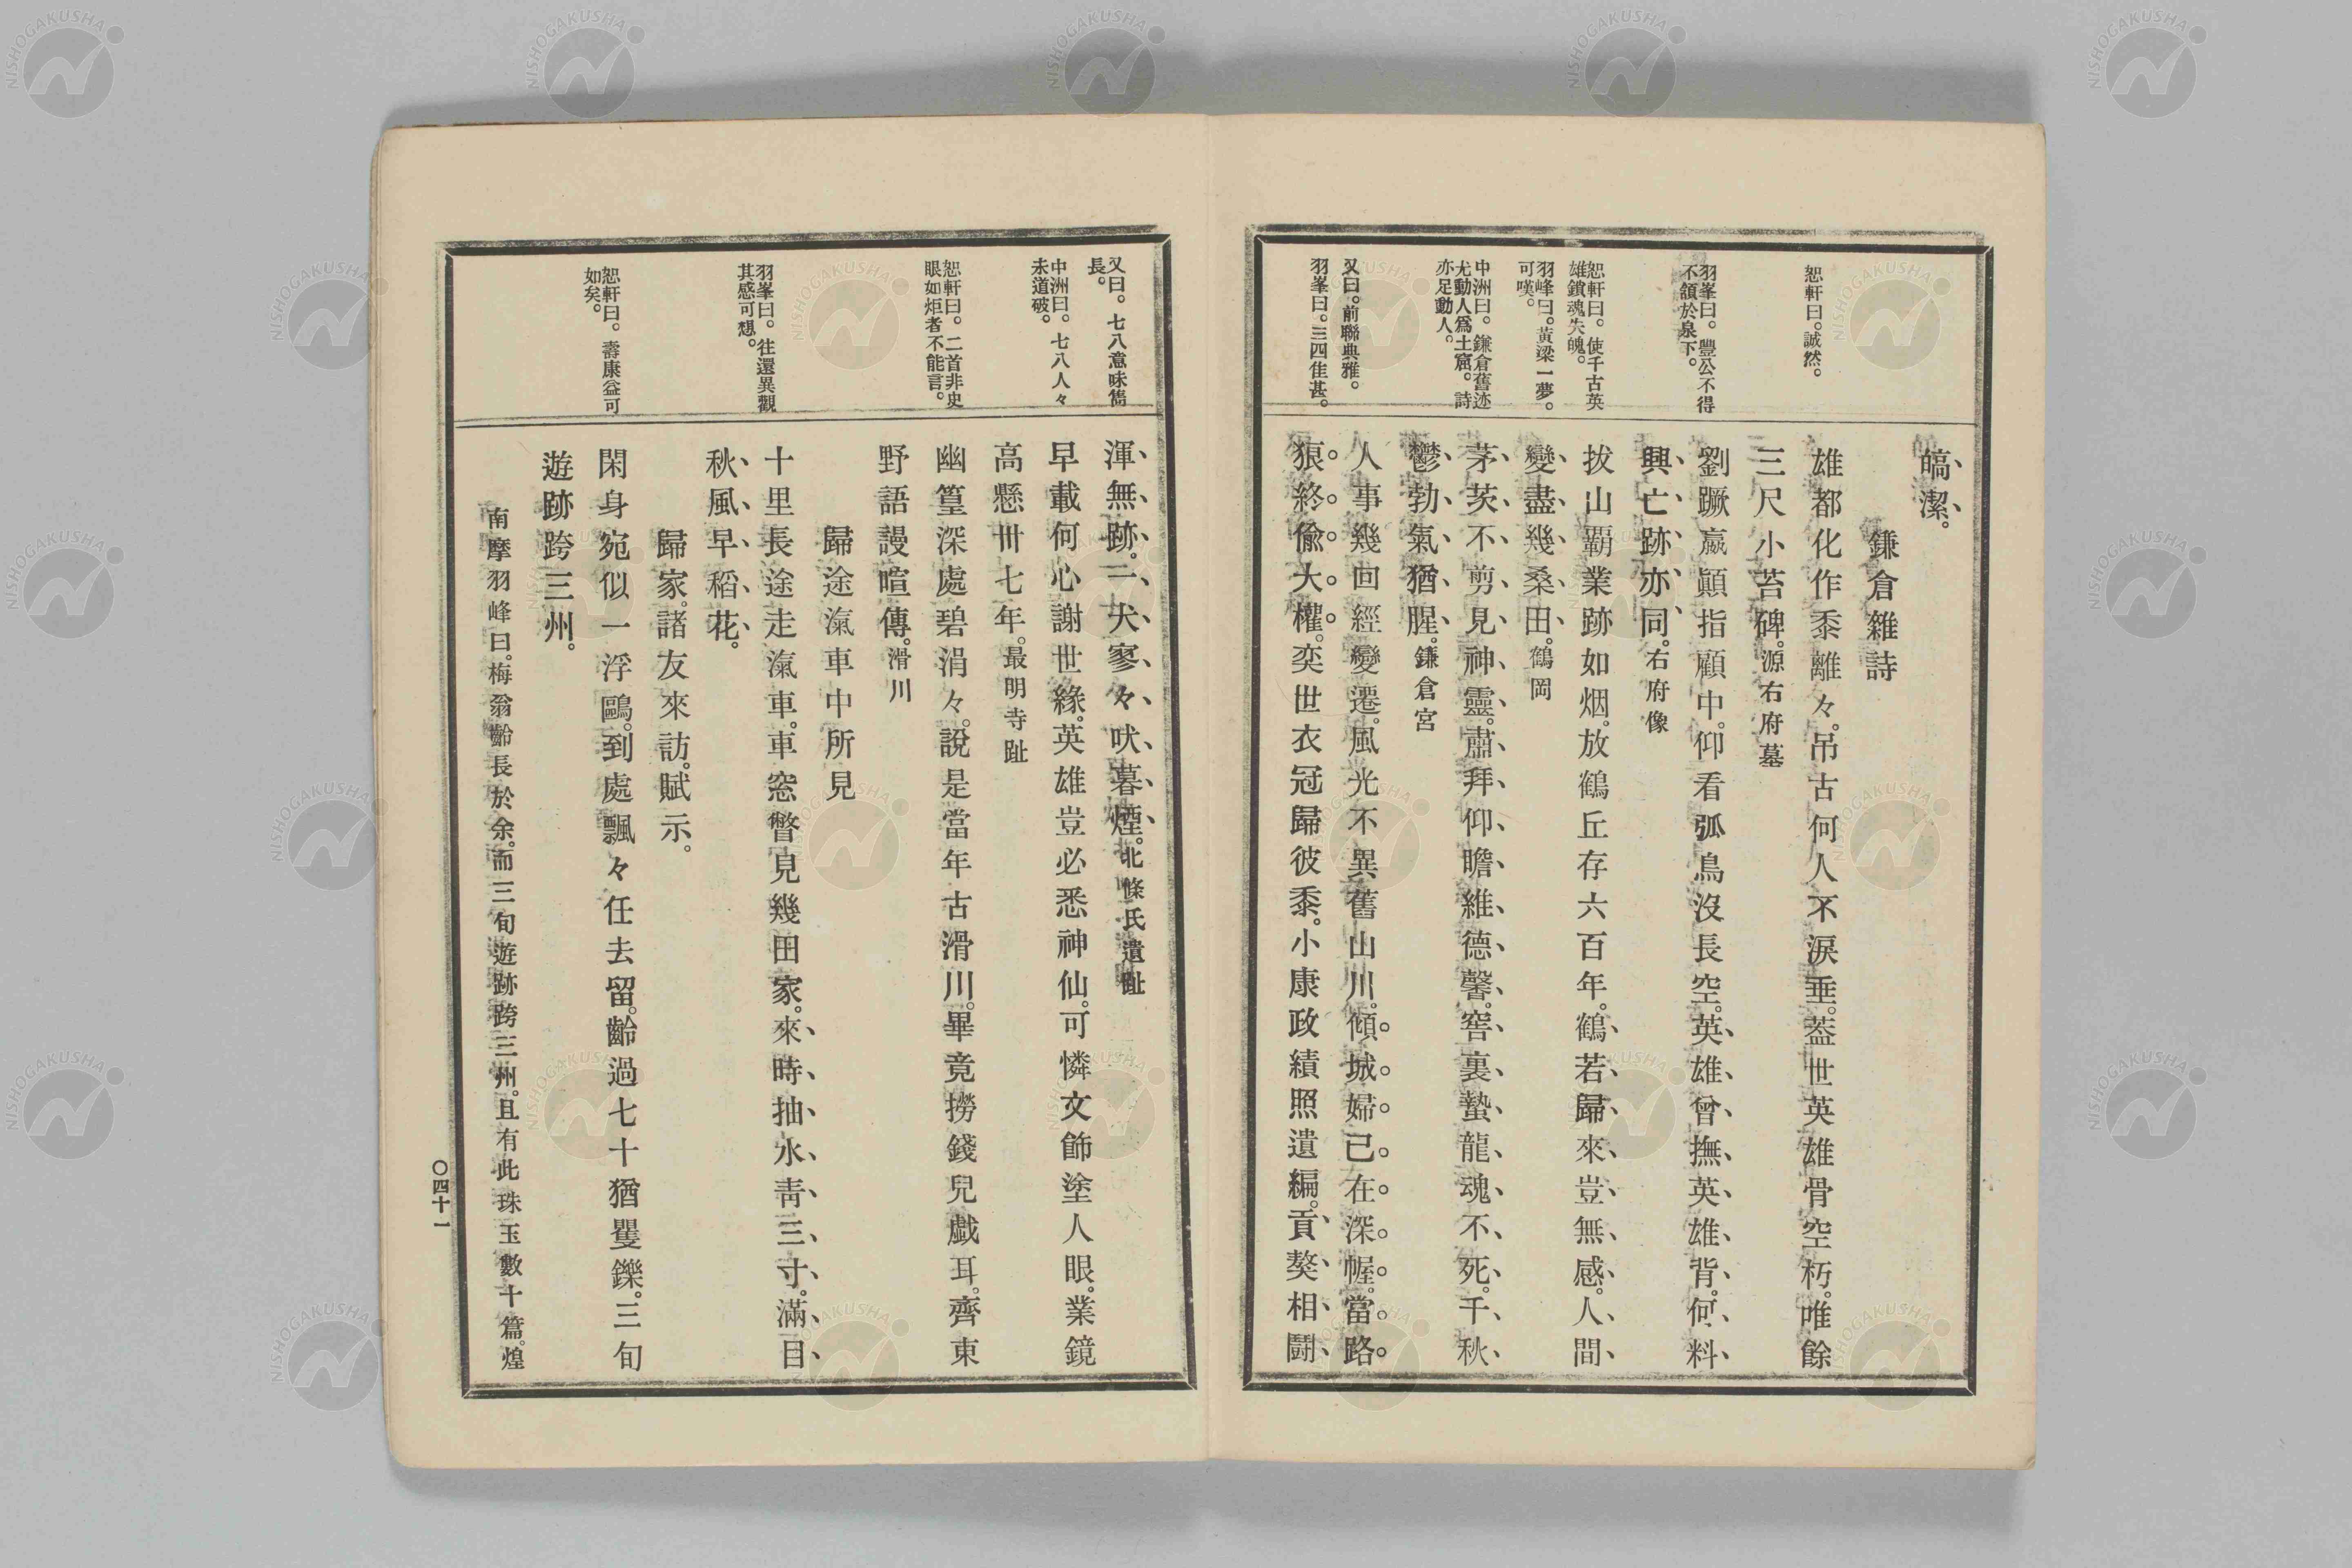 恕軒曰。誠然。
羽峯曰。豐公不得
不頷於泉下。
恕軒曰。使千古英
雄鎖魂失魄。
羽峰曰。黃梁一夢。
可嘆。
中洲曰。鎌倉舊迹
尤動人爲土窟。詩
亦足動人。
又曰。前聯典雅。
羽峯曰。三四佳甚。
皜潔。
鎌倉雜詩
雄都化作黍離々。吊古何人不淚垂。葢世英雄骨空朽。唯餘
三尺小苔碑。源右府墓
劉蹶嬴顚指顧中。仰看弧鳥沒長空。英雄曾撫英雄背。何料
興亡跡亦同。右府像
拔山覇業跡如烟。放鶴丘存六百年。鶴若歸來豈無感。人間
變盡幾桑田。鶴岡
茅茨不剪見神靈。肅拜仰瞻維德馨。窖裏蟄龍魂不死。千秋
鬱勃氣猶腥。鎌倉宮
人事幾回經變遷。風光不異舊山川。傾城婦已在深幄。當路
狼終偸大權。奕世衣冠歸彼黍。小康政績照遺編。貢獒相鬪
又曰。七八意味雋
長。
中洲曰。七八人々
未道破。
恕軒曰。二首非史
眼如炬者不能言。
羽峯曰。往還異觀
其感可想。
恕軒曰。壽康益可
如矣。
渾無跡。二犬寥々吠暮煙。北條氏遺趾
早載何心謝世緣。英雄豈必悉神仙。可憐文飾塗人眼。業鏡
高懸卅七年。最明寺趾
幽篁深處碧涓々。說是當年古滑川。畢竟撈錢兒戲耳。齊東
野語謾喧傳。滑川
歸途滊車中所見
十里長途走滊車。車窓瞥見幾田家。來時抽水靑三寸。滿目
秋風早稻花。
歸家。諸友來訪。賦示。
閑身宛似一浮鷗。到處飄々任去留。齡過七十猶矍鑠。三旬
遊跡跨三州。
南摩羽峰曰。梅翁齡長於余。而三旬遊跡跨三州。且有此珠玉數十篇。煌
〇四十一